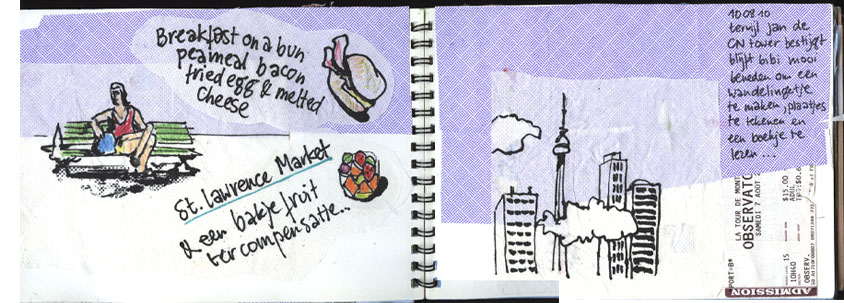 Breakfast on a bun
peameal bacon
fried egg & melted
cheese
St. Lawrence Market
& een bakje fruit
ter compensatie...
100810
terwijl jan de
CN tower bestijgt
blijft bibi mooi
beneden om een
wandelingetje
te maken, plaatjes
te tekenen en
een boekje te
lezen...
LA TOUR DE MONT
OBSERVATO
SAMEDI 7 AOUT
$15.00
ADUL
15
10H40
OBSERV.
PORT-B*
ADMISSION